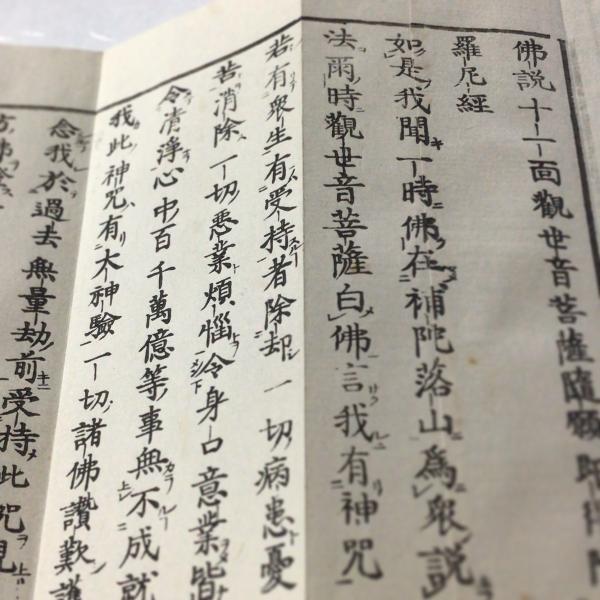 佛説十一面觀世音菩薩隨願
羅尼經
如是我聞一時佛在補陀落山爲衆説
法爾時觀世音菩薩白佛言我有神咒
若有衆生有受持者除却一切病患憂
苦消除一切悪業煩惱令身口意業皆
令清淨心中百千萬億等事無不成就
我此神咒有大神驗一切諸佛讃歎護
念我於過去無量劫前受持此咒